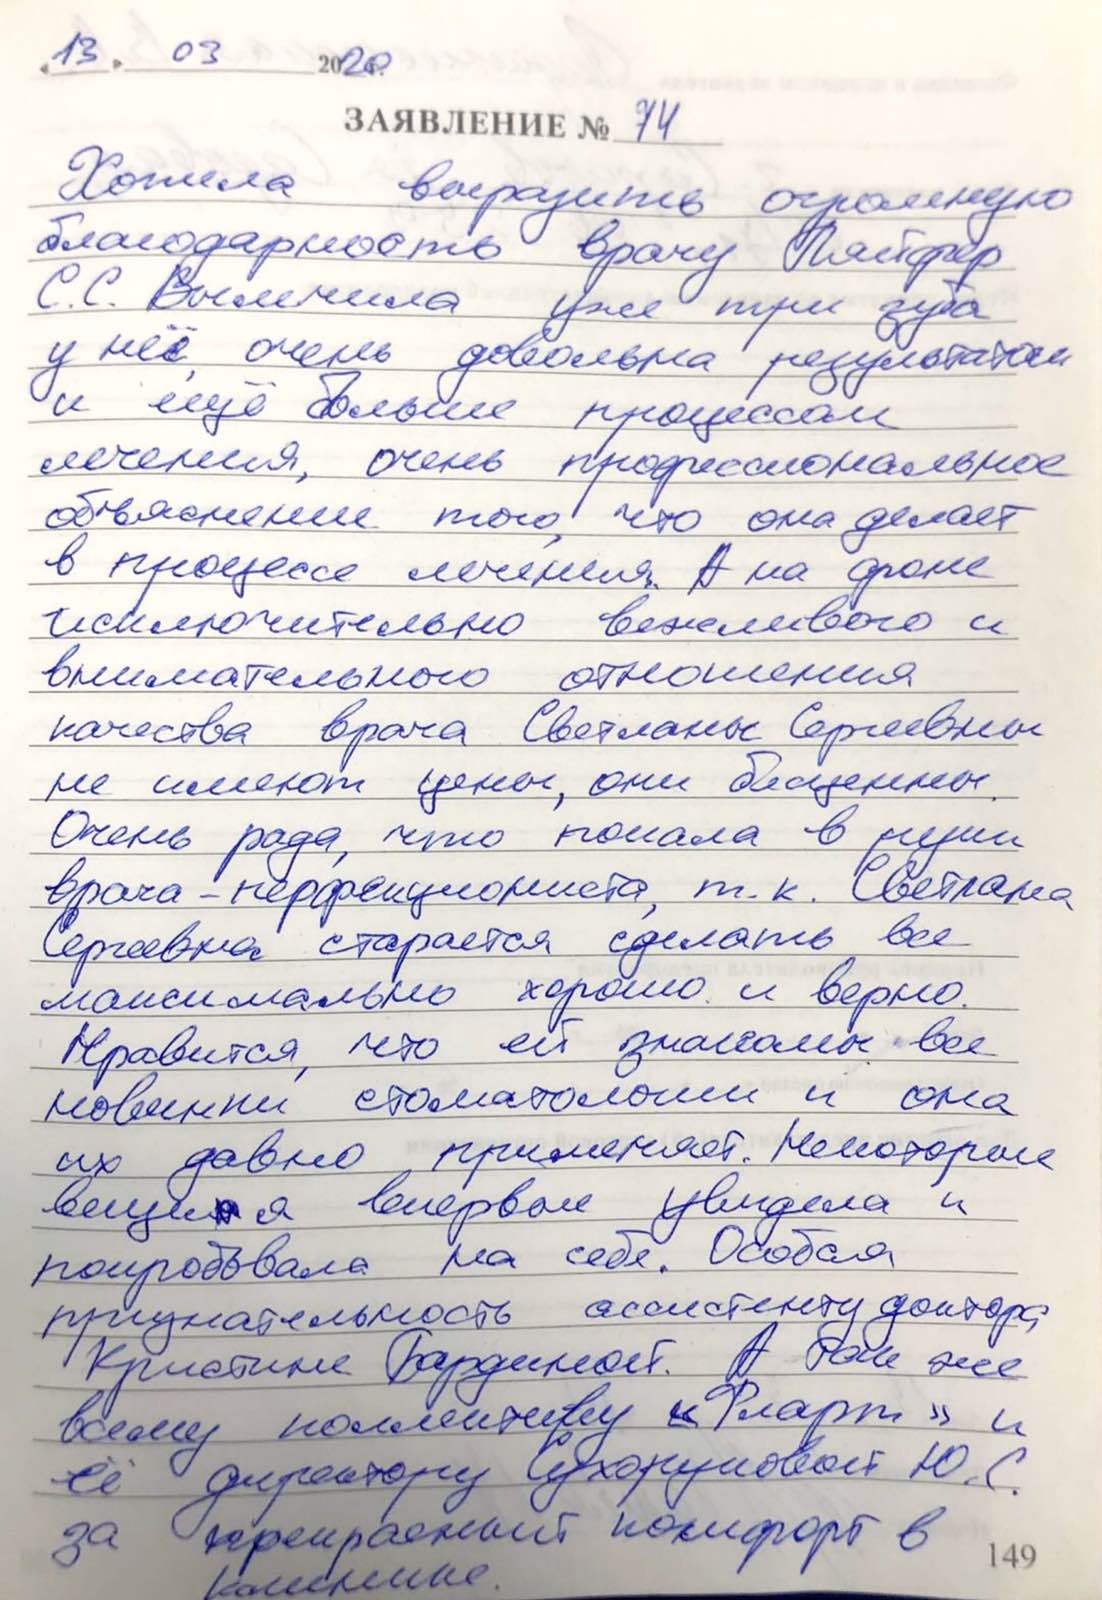 «13» 03 2020 г.
ЗАЯВЛЕНИЕ № 74
Хотела выразить огромную
благодарность врачу Пляйфер
С.С. Вылечила уже три зуба
у неё, очень довольна результатом
и ещё больше процессом
лечения, очень профессиональное
объяснение того, что она делает
в процессе лечения. А на фоне
исключительно вежливого и
внимательного отношения
качества врача Светланы Сергеевны
не имеют цены, они бесценны.
Очень рада, что попала в руки
врача - перфекциониста, т.к. Светлана
Сергеевна старается сделать все
максимально хорошо и верно.
Нравится, что ей знакомы все
новинки стоматологии и она
их давно применяет. Некоторые
вещи я впервые увидела и
попробовала на себе. Особая
признательность ассистенту доктора,
Кристине Бардиной. А так же
всему коллективу «Фларт» и
её директору Сухоруковой Ю.С.
за прекрасный комфорт в
клинике.
149